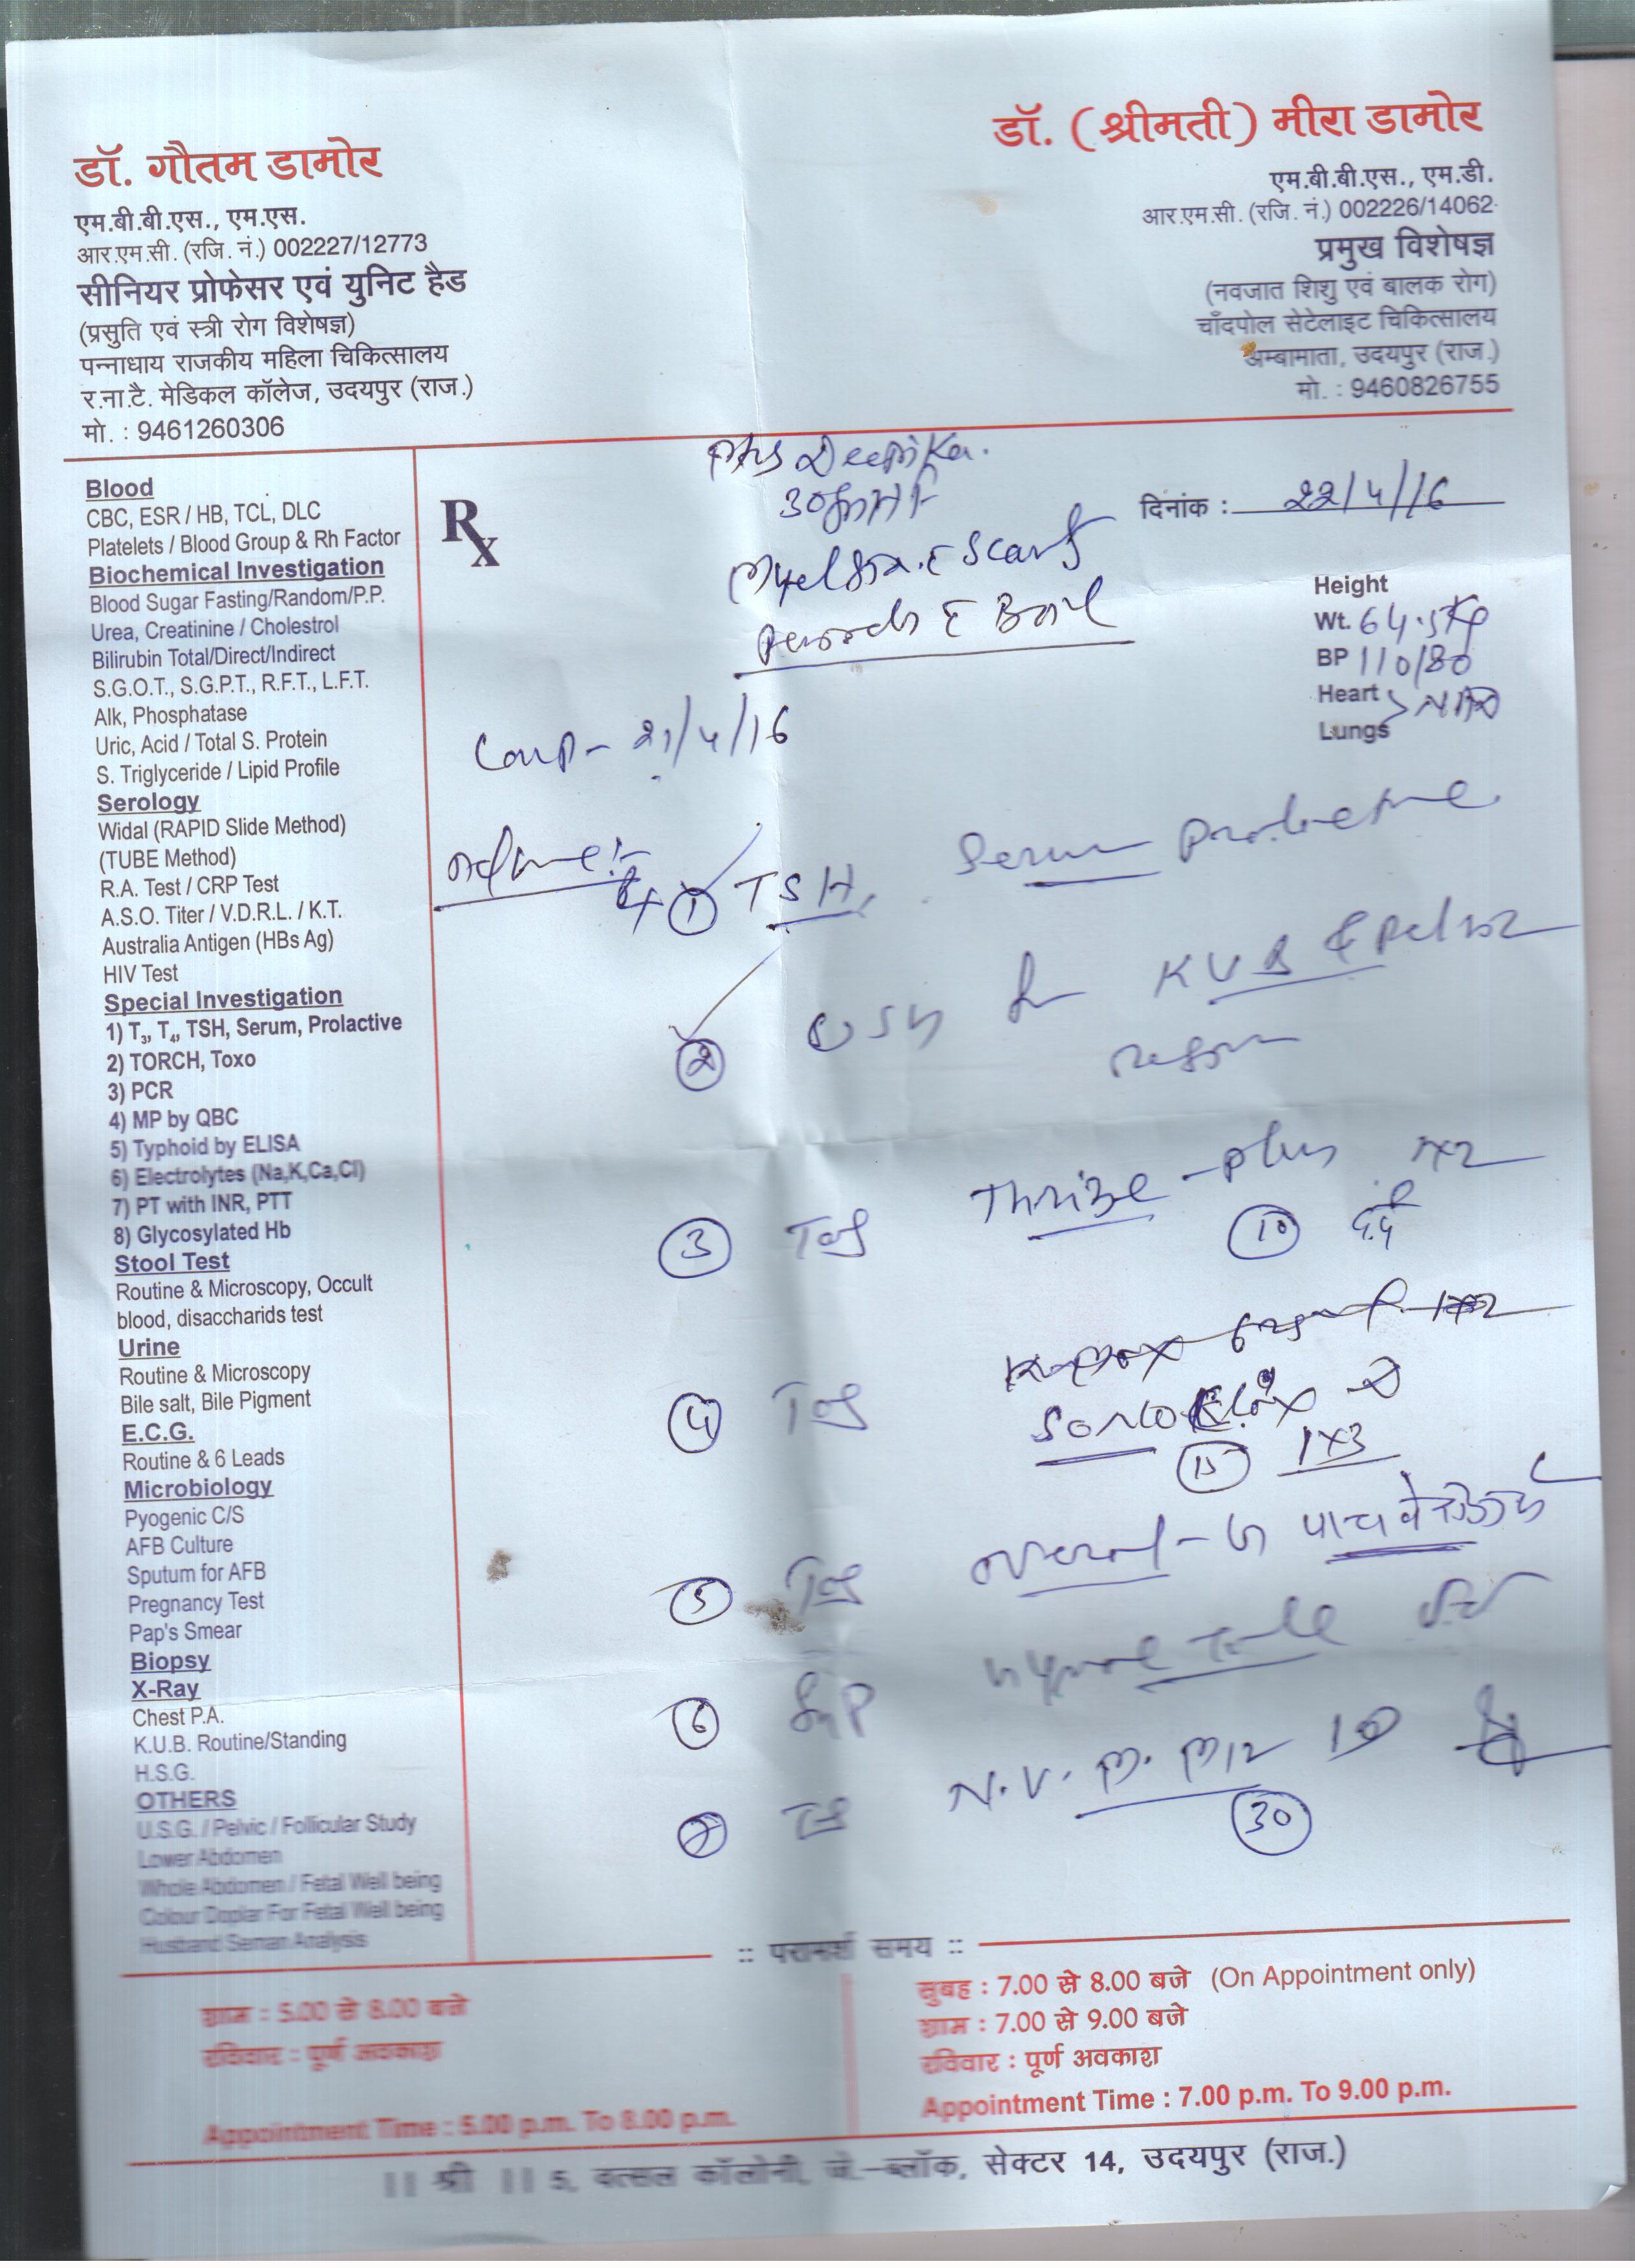 डॉ. गौतम डामोर
एम.बी.बी.एस., एम.एस.
आर.एम.सी. (रजि. नं.) 002227/12773
सीनियर प्रोफेसर एवं युनिट हैड
(प्रसुति एवं स्त्री रोग विशेषज्ञ)
पन्नाधाय राजकीय महिला चिकित्सालय
र.ना.टै. मेडिकल कॉलेज, उदयपुर (राज.)
मो. : 9461260306
डॉ. (श्रीमती) मीरा डामोर
एम.बी.बी.एस., एम.डी.
आर.एम.सी. (रजि. नं.) 002226/14062
प्रमुख विशेषज्ञ
(नवजात शिशु एवं बालक रोग)
चाँदपोल सेटेलाइट चिकित्सालय
अम्बामाता, उदयपुर (राज.)
मो. : 9460826755
Blood
CBC, ESR / HB, TCL, DLC
Platelets / Blood Group & Rh Factor
Biochemical Investigation
Blood Sugar Fasting/Random/P.P.
Urea, Creatinine / Cholestrol
Bilirubin Total/Direct/Indirect
S.G.O.T., S.G.P.T., R.F.T., L.F.T.
Alk, Phosphatase
Uric, Acid / Total S. Protein
S. Triglyceride / Lipid Profile
Serology
Widal (RAPID Slide Method)
(TUBE Method)
R.A. Test / CRP Test
A.S.O. Titer / V.D.R.L. / K.T.
Australia Antigen (HBs Ag)
HIV Test
Special Investigation
1) T3, T4, TSH, Serum, Prolactive
2) TORCH, Toxo
3) PCR
4) MP by QBC
5) Typhoid by ELISA
6) Electrolytes (Na,K,Ca,Cl)
7) PT with INR, PTT
8) Glycosylated Hb
Stool Test
Routine & Microscopy, Occult
blood, disaccharids test
Urine
Routine & Microscopy
Bile salt, Bile Pigment
E.C.G.
Routine & 6 Leads
Microbiology
Pyogenic C/S
AFB Culture
Sputum for AFB
Pregnancy Test
Pap's Smear
Biopsy
X-Ray
Chest P.A.
K.U.B. Routine/Standing
H.S.G.
OTHERS
U.S.G. / Pelvic / Follicular Study
Lower Abdomen
Whole Abdomen / Fetal Well being
Colour Doplar For Fetal Well being
Husband Seman Analysis
Rx
Mrs Deepika.
दिनांक : 22/4/16
Height
Wt. 64.5 Kg
BP 110/80
Heart
Lungs
Lmp - 21/4/16
1 TSH, Serum Prolactine
2 USG for KUB & Pelvic
region
3 Tab Thrize-plus 1x2
10
4 Tab
15 1x3
5 Tab
6
7 Tab
30
:: परामर्श समय ::
शाम : 5.00 से 8.00 बजे
रविवार : पूर्ण अवकाश
Appointment Time : 5.00 p.m. To 8.00 p.m.
सुबह : 7.00 से 8.00 बजे (On Appointment only)
शाम : 7.00 से 9.00 बजे
रविवार : पूर्ण अवकाश
Appointment Time : 7.00 p.m. To 9.00 p.m.
|| श्री || 5, वत्सल कॉलोनी, जे.-ब्लॉक, सेक्टर 14, उदयपुर (राज.)